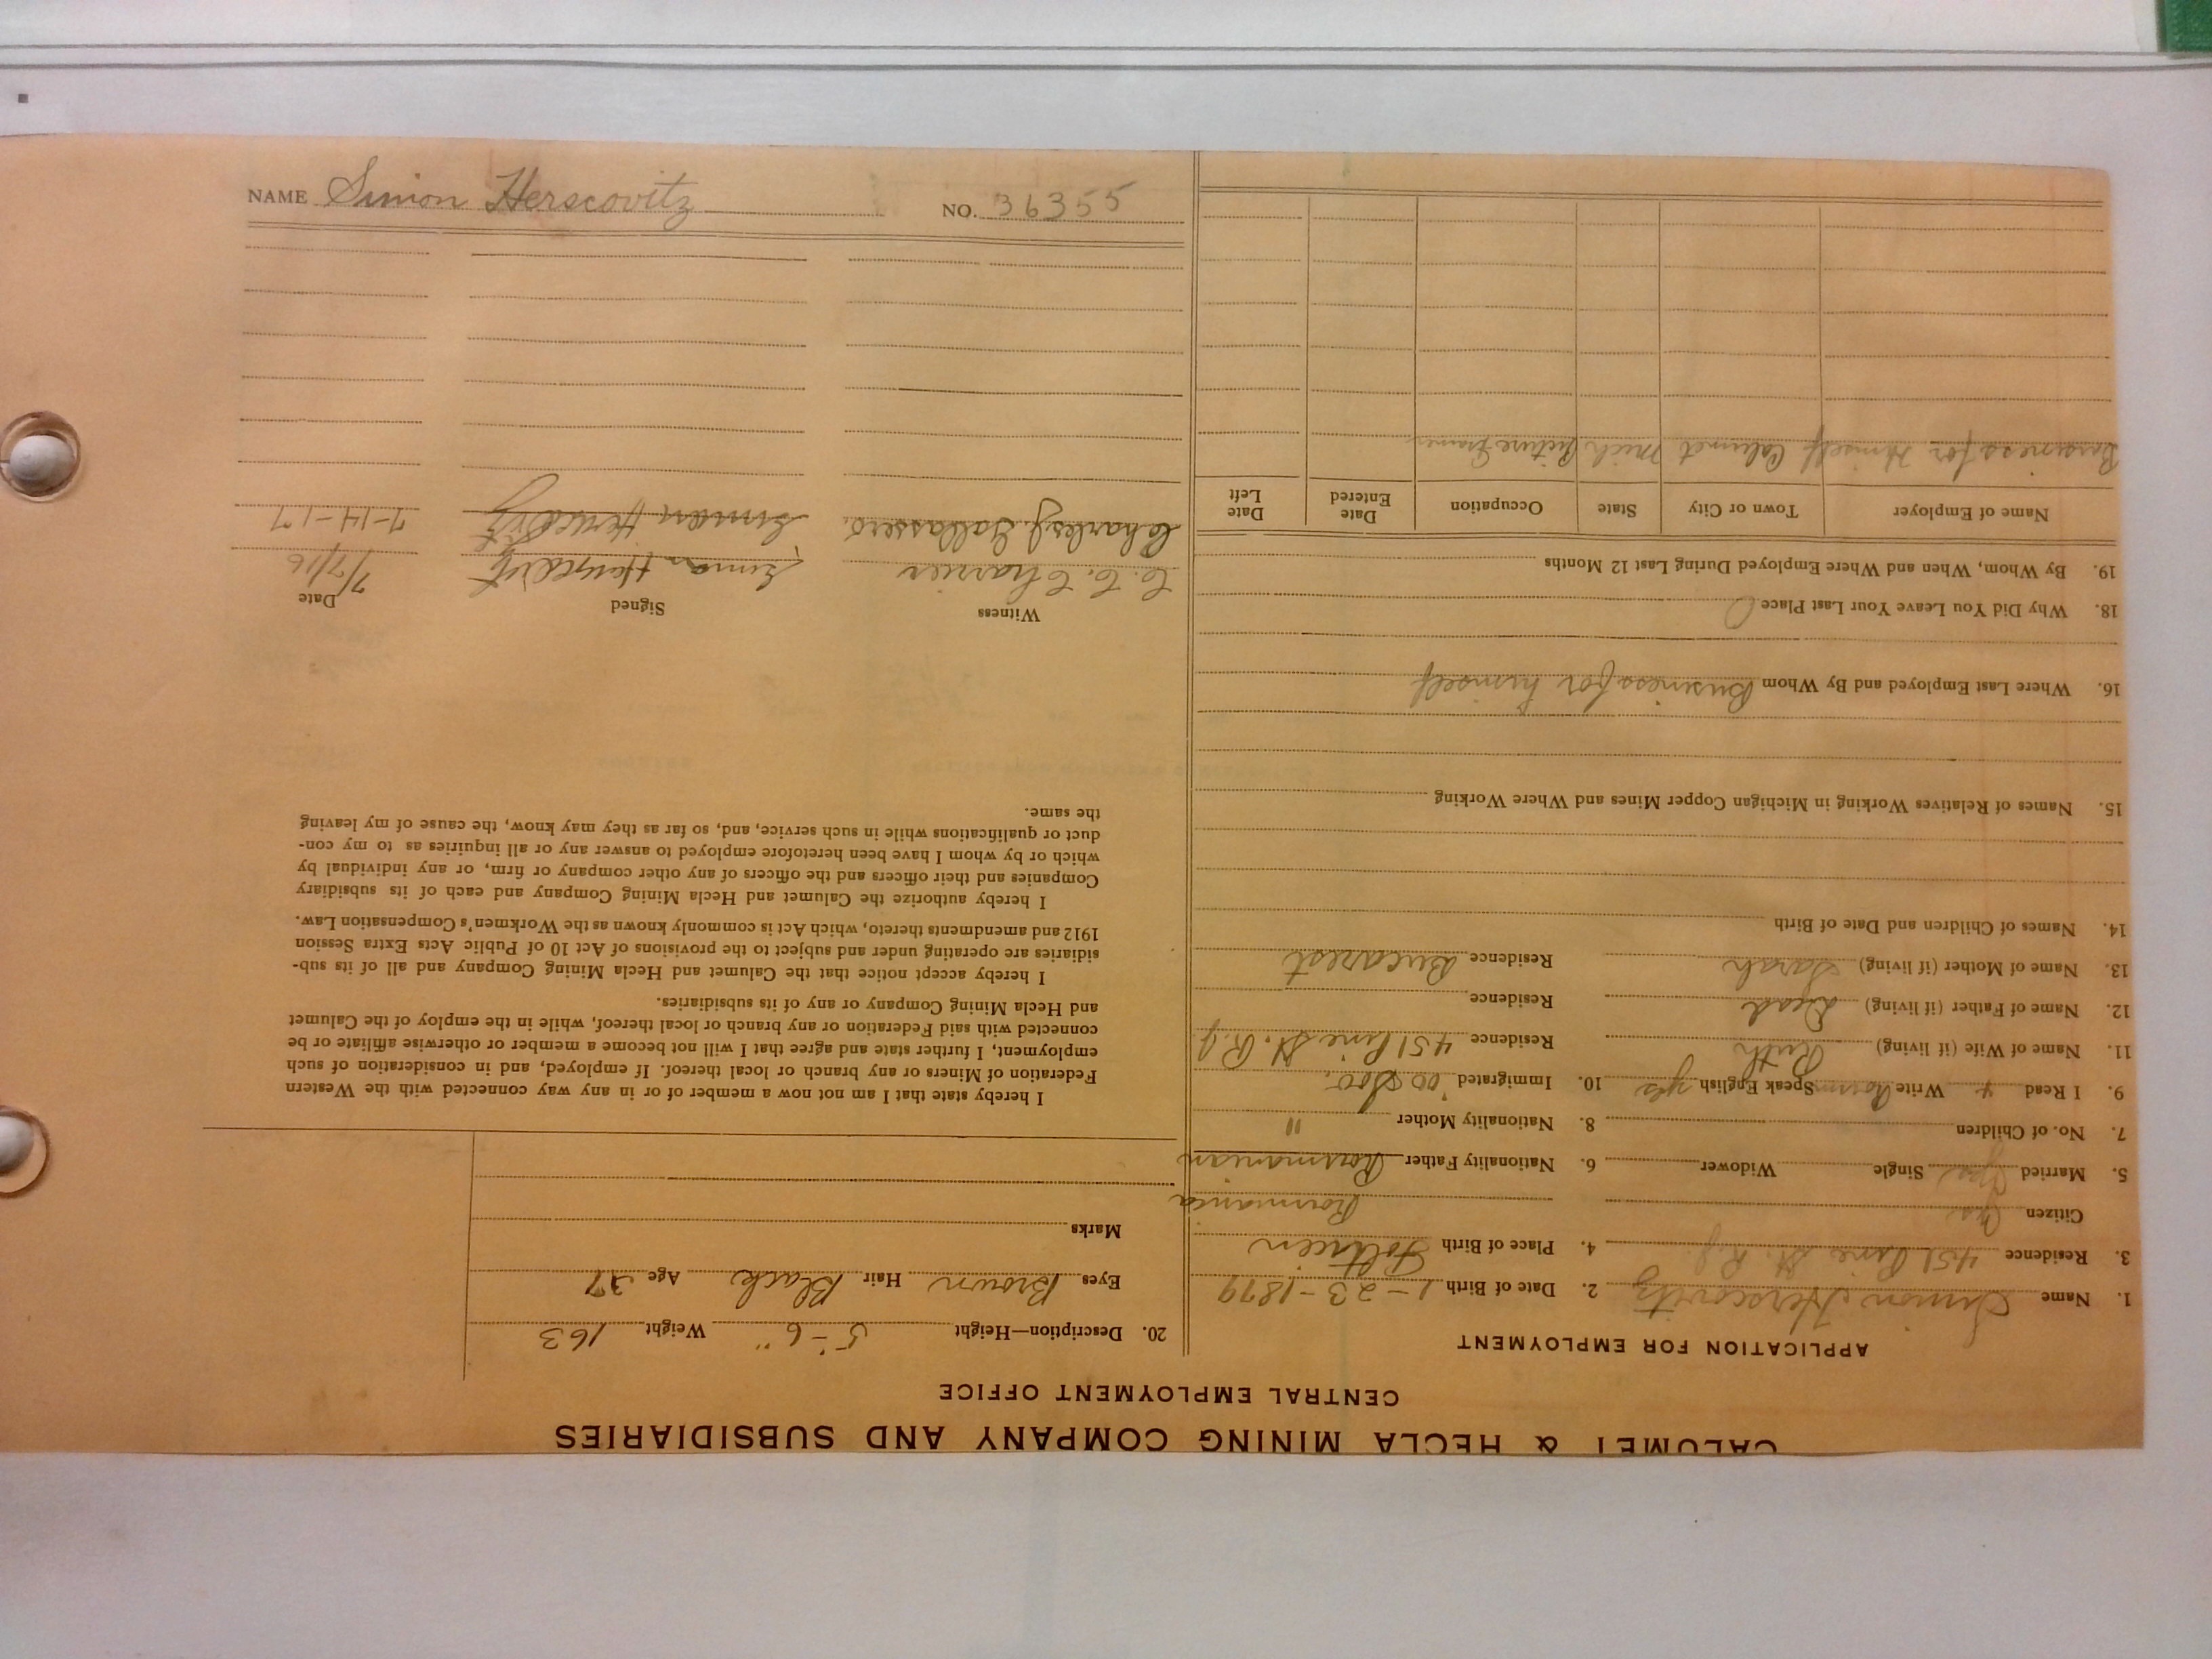 CALUMET & HECLA MINING COMPANY AND SUBSIDIARIES
CENTRAL EMPLOYMENT OFFICE
APPLICATION FOR EMPLOYMENT
1. Name Simon Herscovitz 2. Date of Birth 1-23-1879
3. Residence 451 Pine St. R.J. 4. Place of Birth
Citizen Yes Roumania
5. Married Yes Single Widower 6. Nationality Father Roumanian
7. No. of Children 8. Nationality Mother "
9. I Read Write Speak English yes 10. Immigrated
11. Name of Wife (if living) Ruth Residence 451 Pine St. R.J.
12. Name of Father (if living) Dead Residence
13. Name of Mother (if living) Sarah Residence Bucarest
14. Names of Children and Date of Birth
15. Names of Relatives Working in Michigan Copper Mines and Where Working
16. Where Last Employed and By Whom Business for himself
18. Why Did You Leave Your Last Place
19. By Whom, When and Where Employed During Last 12 Months
Name of Employer Town or City State Occupation Date Entered Date Left
Business for Himself Calumet Mich Picture Frames
20. Description—Height 5'-6" Weight 163
Eyes Brown Hair Black Age 37
Marks
I hereby state that I am not now a member of or in any way connected with the Western
Federation of Miners or any branch or local thereof. If employed, and in consideration of such
employment, I further state and agree that I will not become a member or otherwise affiliate or be
connected with said Federation or any branch or local thereof, while in the employ of the Calumet
and Hecla Mining Company or any of its subsidiaries.
I hereby accept notice that the Calumet and Hecla Mining Company and all of its sub-
sidiaries are operating under and subject to the provisions of Act 10 of Public Acts Extra Session
1912 and amendments thereto, which Act is commonly known as the Workmen's Compensation Law.
I hereby authorize the Calumet and Hecla Mining Company and each of its subsidiary
Companies and their officers and the officers of any other company or firm, or any individual by
which or by whom I have been heretofore employed to answer any or all inquiries as to my con-
duct or qualifications while in such service, and, so far as they may know, the cause of my leaving
the same.
Witness Signed Date
C. C. Charrier 7/7/16
Charles J. Gallassero. Simon 7-14-17
NAME Simon Herscovitz NO. 36355